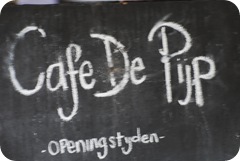 Cafe De Pijp
-Openingstijden-